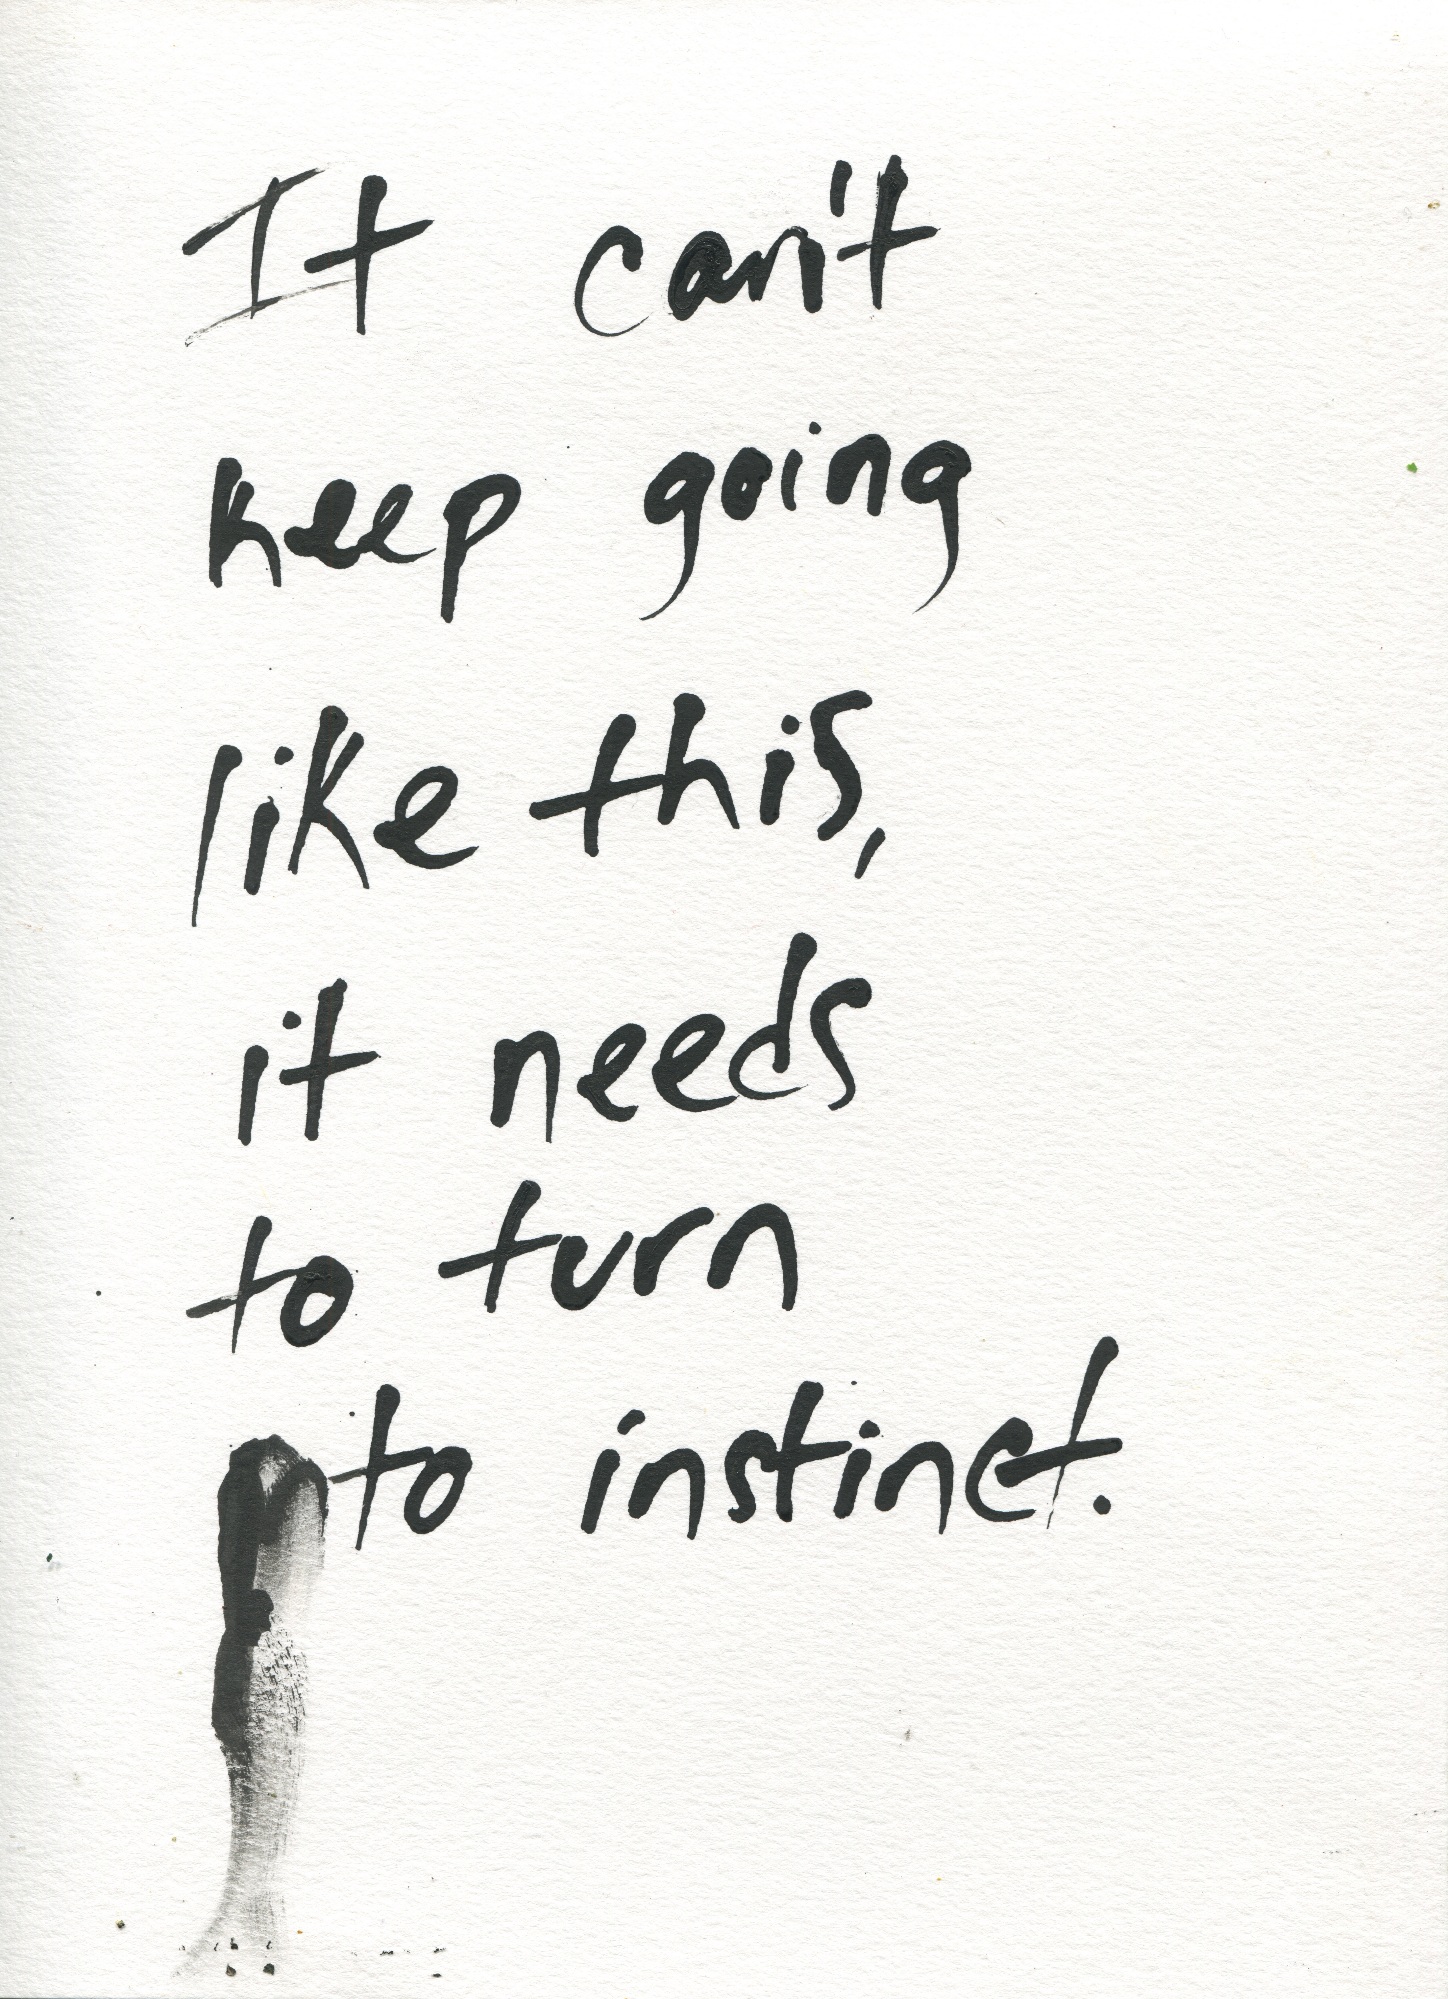 It can't
keep going
like this,
it needs
to turn
to instinct.